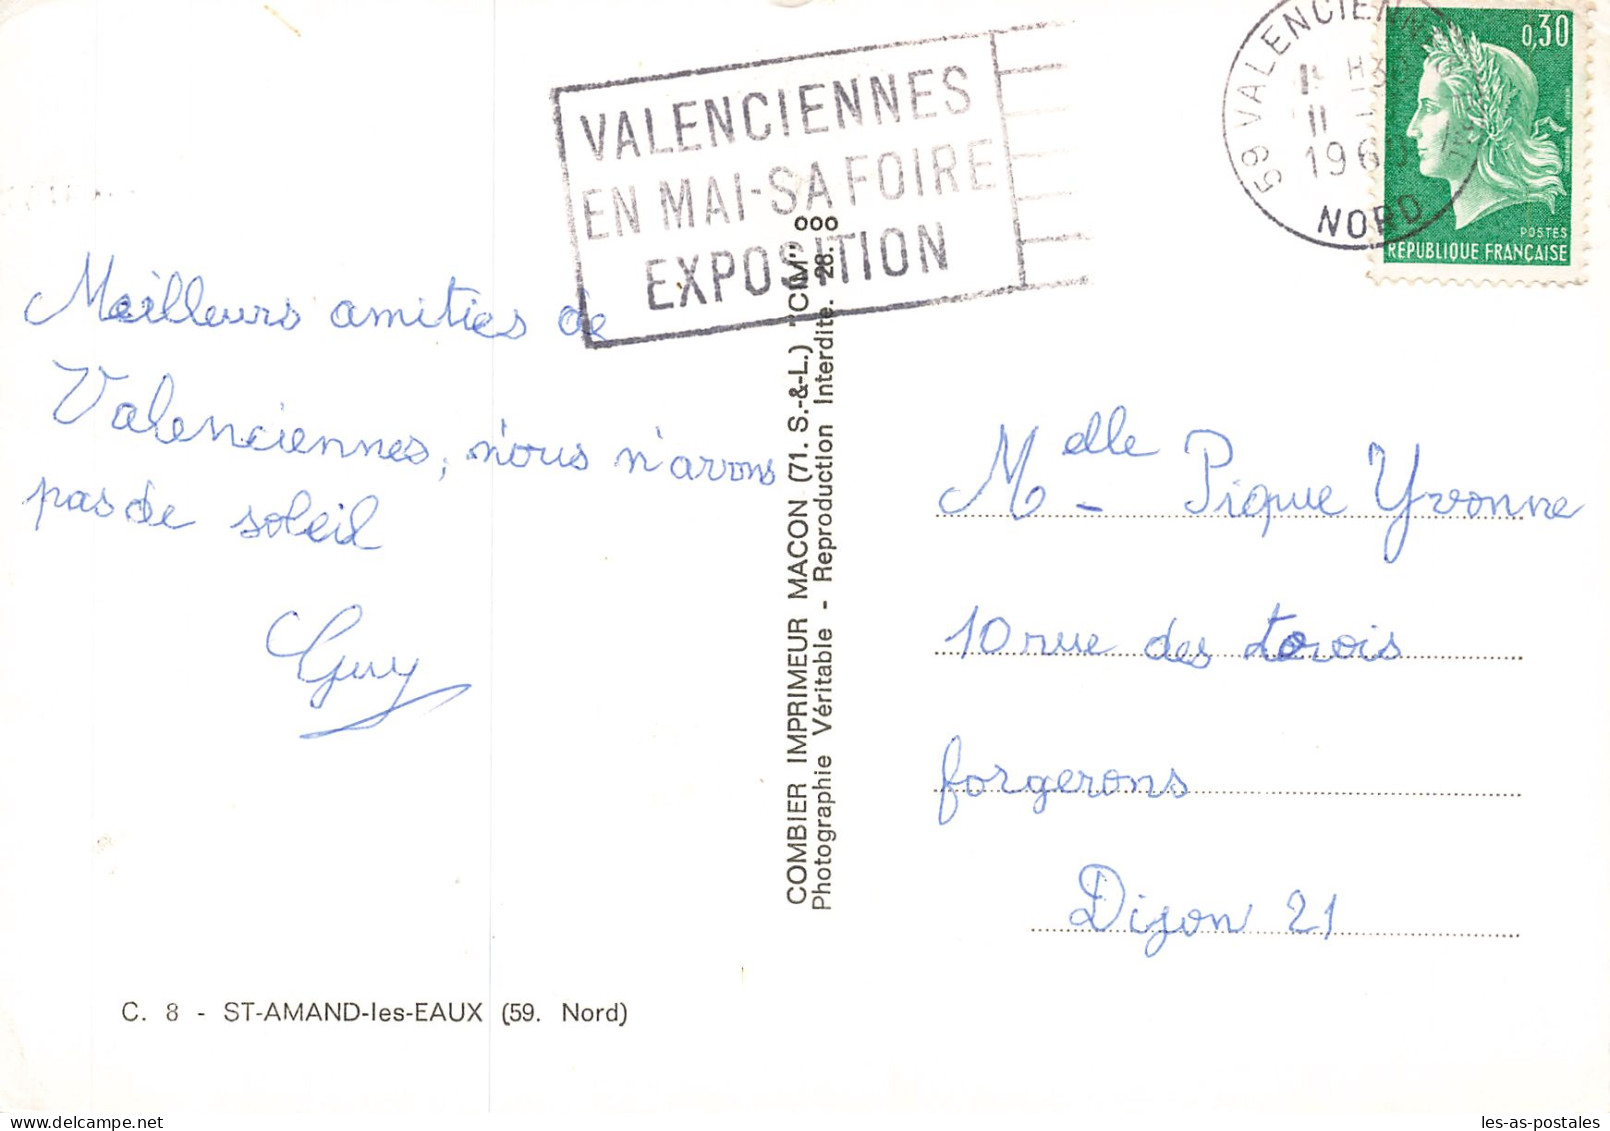 VALENCIENNES
EN MAI-SA FOIRE
EXPOSITION
59 VALENCIENN
NORD
0,30
POSTES
REPUBLIQUE FRANÇAISE
Meilleurs amitiés de
Valenciennes, nous n'avons
pas de soleil
Guy
COMBIER IMPRIMEUR MACON (71. S.-&-L.) "CIM"
Photographie Véritable - Reproduction Interdite. 28.
Melle - Pique Yvonne
10 rue des trois
forgerons
Dijon 21
C. 8 - ST-AMAND-les-EAUX (59. Nord)
les-as-postales